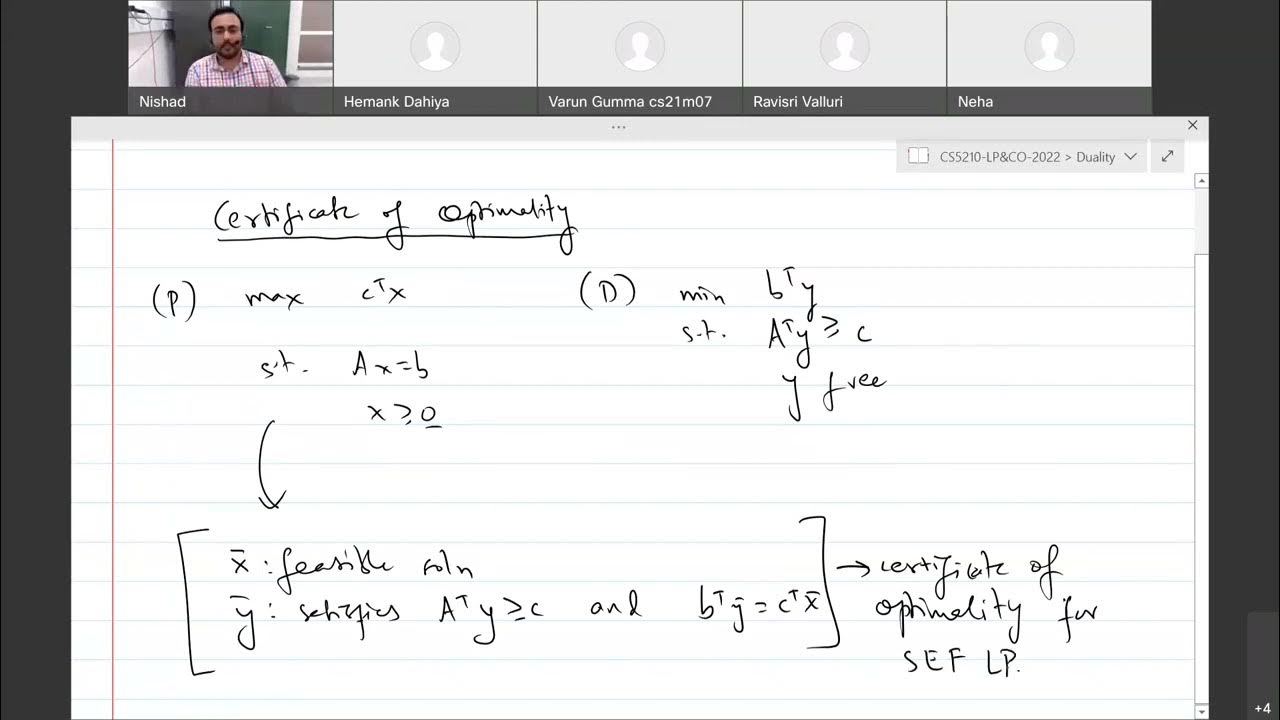 Nishad
Hemank Dahiya
Varun Gumma cs21m07
Ravisri Valluri
Neha
CS5210-LP&CO-2022 > Duality
Certificate of optimality
(P) max cᵀx
s.t. Ax=b
x ≥ 0
(D) min bᵀy
s.t. Aᵀy ≥ c
y free
x̄ : feasible soln
ȳ : satisfies Aᵀy ≥ c and bᵀȳ = cᵀx̄
→ certificate of
optimality for
SEF LP.
+4